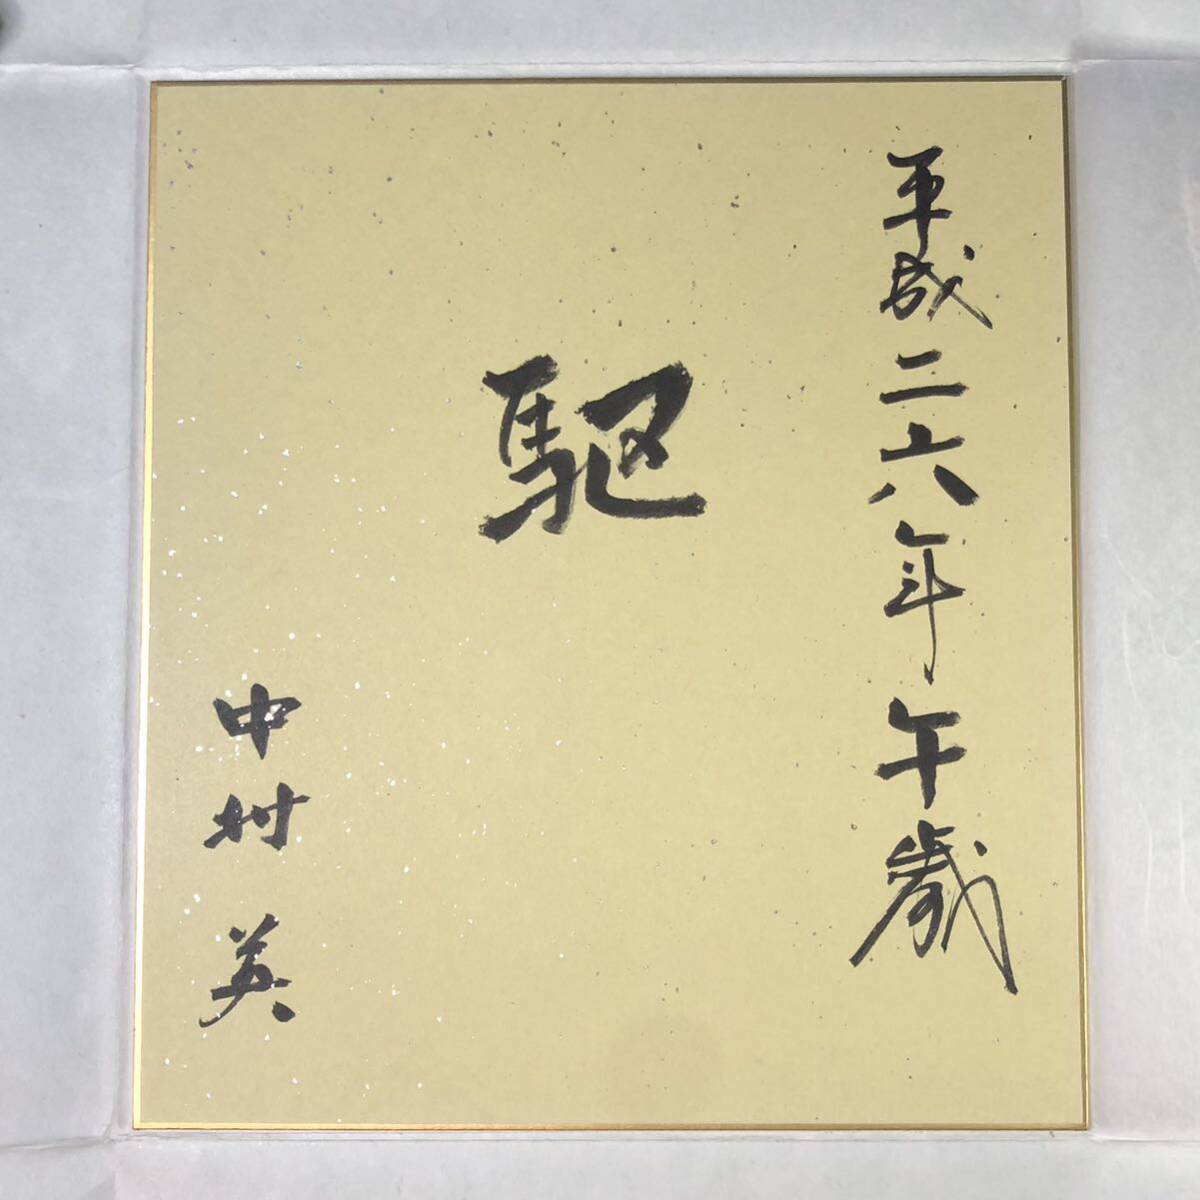 平成二六年午歳
駆
中村英